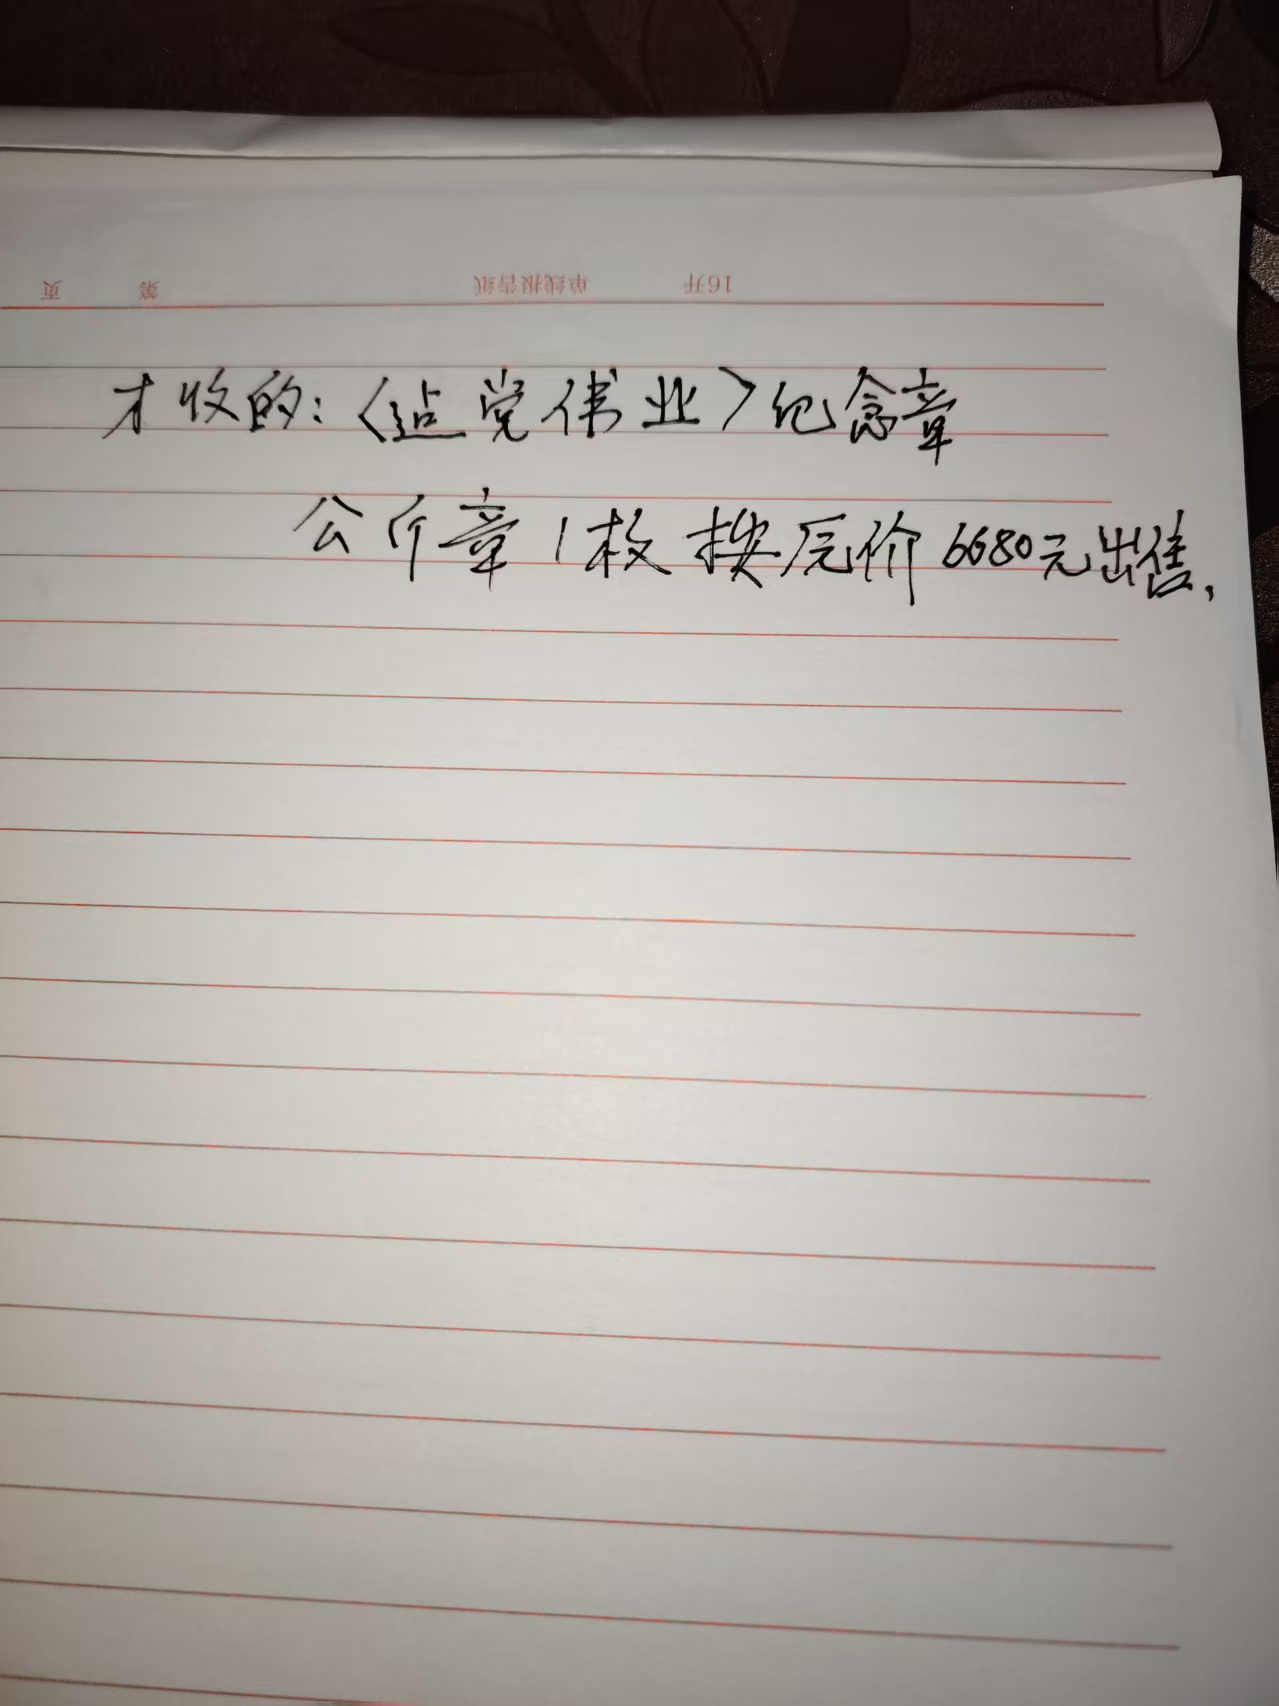 页 第 单线报告纸 16开
才收的：〈建党伟业〉纪念章
公斤章1枚按原价6680元出售，